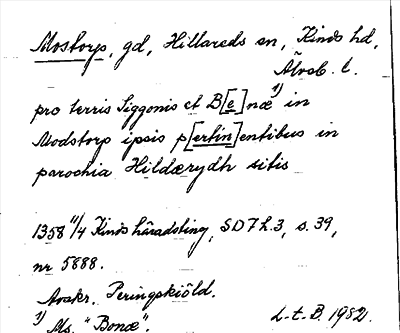 Mostorp, gd, Hillareds sn, Kinds hd,
Älvsb. l.
pro terris Siggonis et B[e]næ 1) in
Modstorp ipsis p[ertin]entibus in
parochia Hildærydh sitis
1358 11/4 Kinds häradsting, SD 7 h. 3, s. 39,
nr 5888.
Avskr. Peringskiöld.
1) Ms. "Bonæ".
L-t. B. 1982.